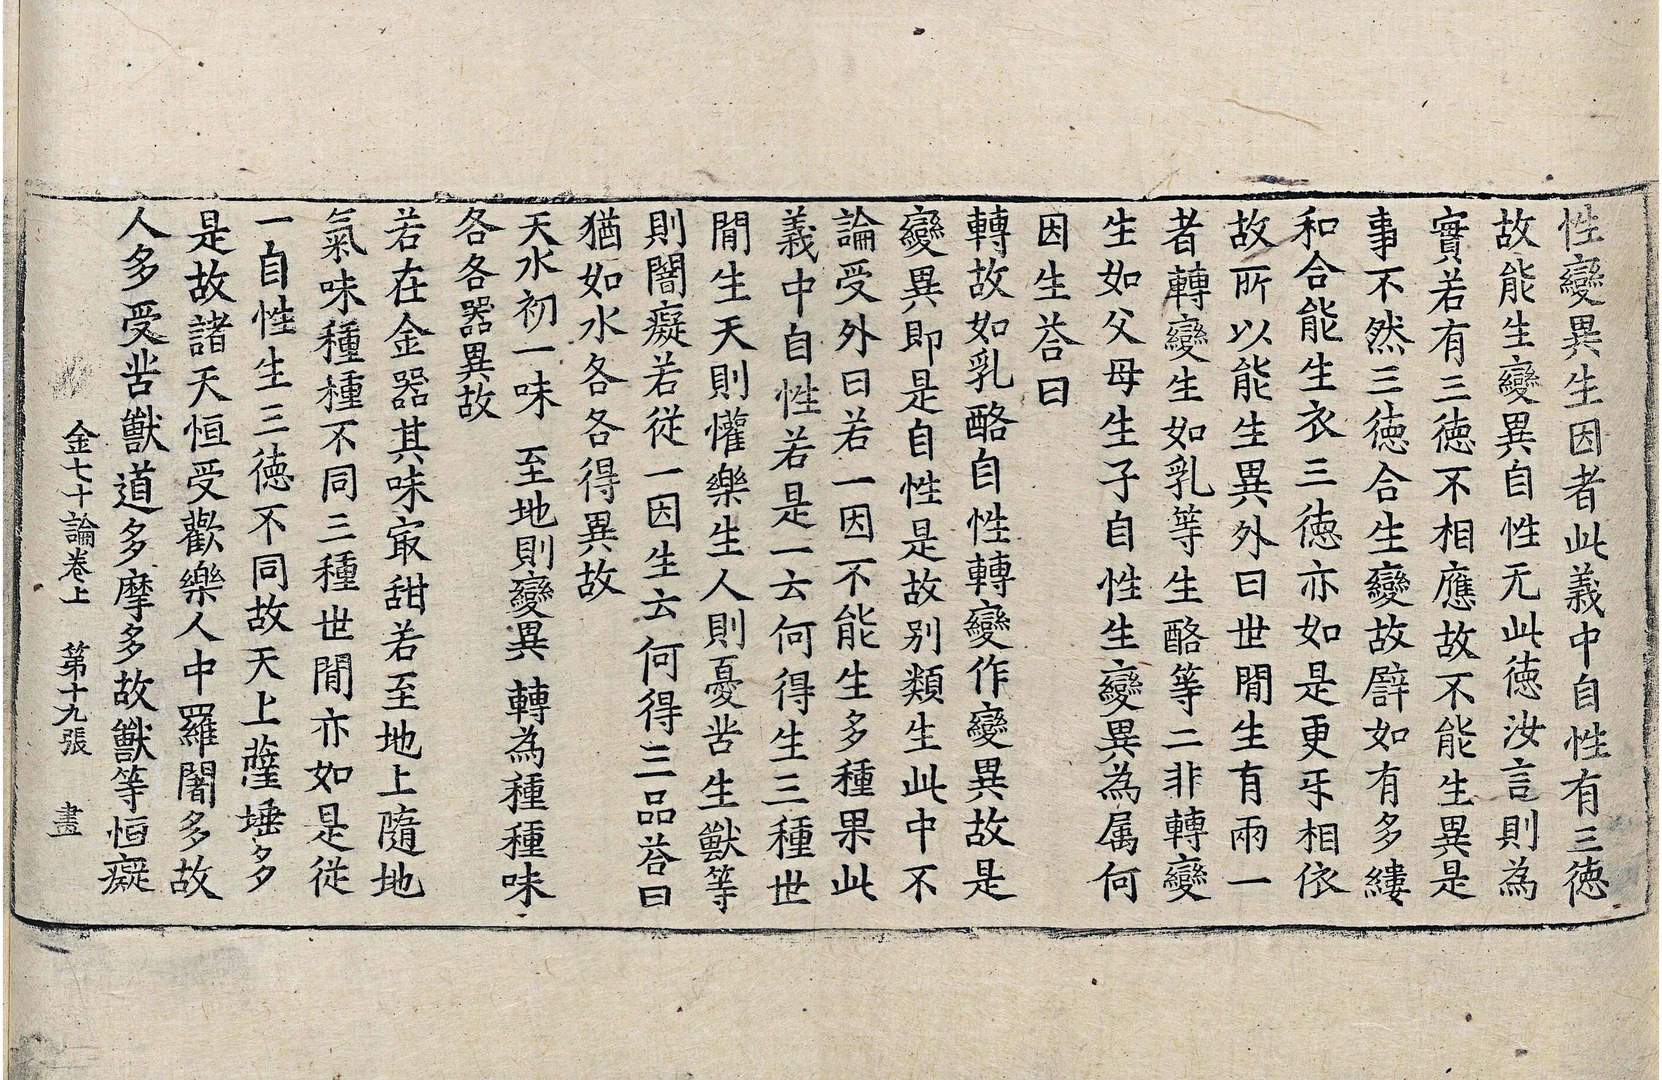 性變異生因者此義中自性有三徳
故能生變異自性无此徳汝言則為
實若有三徳不相應故不能生異是
事不然三徳合生變故譬如有多縷
和合能生衣三徳亦如是更㸦相依
故所以能生異外曰世間生有兩一
者轉變生如乳等生酪等二非轉變
生如父母生子自性生變異為属何
因生荅曰
轉故如乳酪自性轉變作變異故是
變異即是自性是故别類生此中不
論受外曰若一因不能生多種果此
義中自性若是一云何得生三種世
間生天則懽樂生人則憂苦生獸等
則闇癡若從一因生云何得三品荅曰
猶如水各各得異故
天水初一味 至地則變異 轉為種種味
各各器異故
若在金器其味㝡甜若至地上隨地
氣味種種不同三種世間亦如是従
一自性生三徳不同故天上薩埵多
是故諸天恒受歡樂人中羅闍多故
人多受苦獸道多摩多故獸等恒癡
金七十論卷上 第十九張 畫